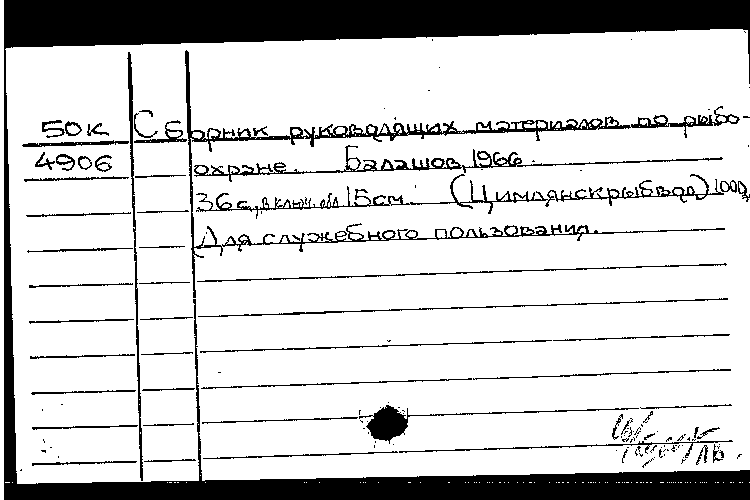 50к Сборник руководящих материалов по рыбо-
4906 охране. Балашов, 1966.
36с., включ. обл. 15см. (Цимлянскрыбвод) 1000,
Для служебного пользования.